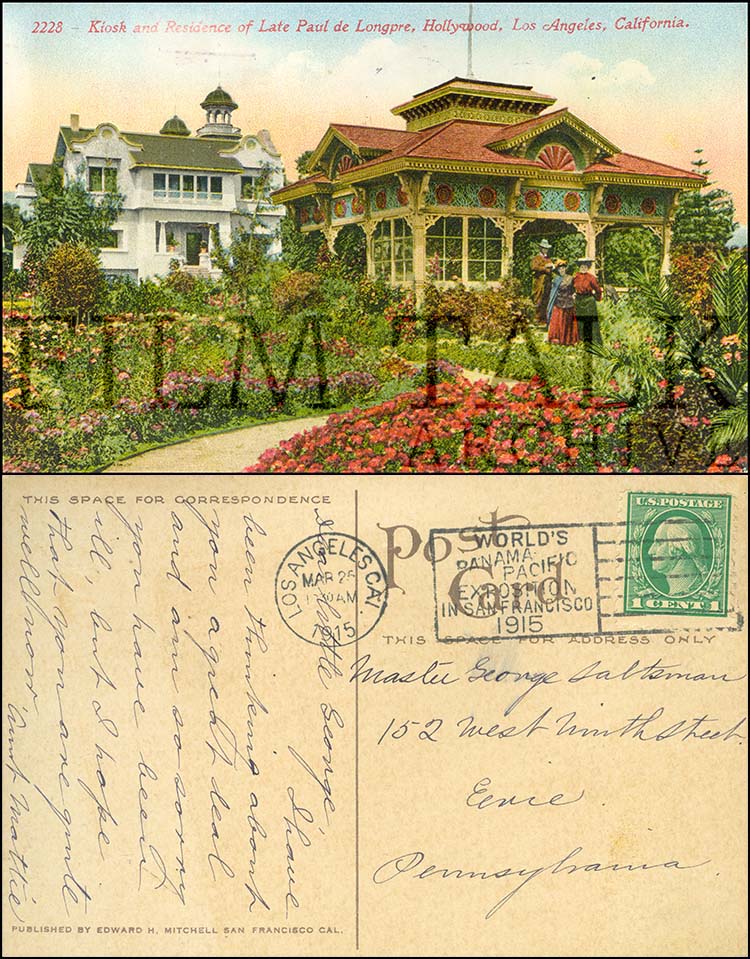 2228 - Kiosk and Residence of Late Paul de Longpre, Hollywood, Los Angeles, California.
FILM TALK
ARCHIVE
THIS SPACE FOR CORRESPONDENCE
Dear little George,
I have
been thinking about
you a great deal
and am so sorry
you have been
ill, but I hope
that you are quite
well now
Aunt Mattie
PUBLISHED BY EDWARD H. MITCHELL SAN FRANCISCO CAL.
LOS ANGELES, CAL.
MAR 25
30 AM
1915
Post Card
WORLD'S
PANAMA-
PACIFIC
EXPOSITION
IN SAN FRANCISCO
1915
U.S. POSTAGE
1 CENT 1
THIS SPACE FOR ADDRESS ONLY
Master George Saltsman
152 West Ninth Street.
Erie.
Pennsylvania.